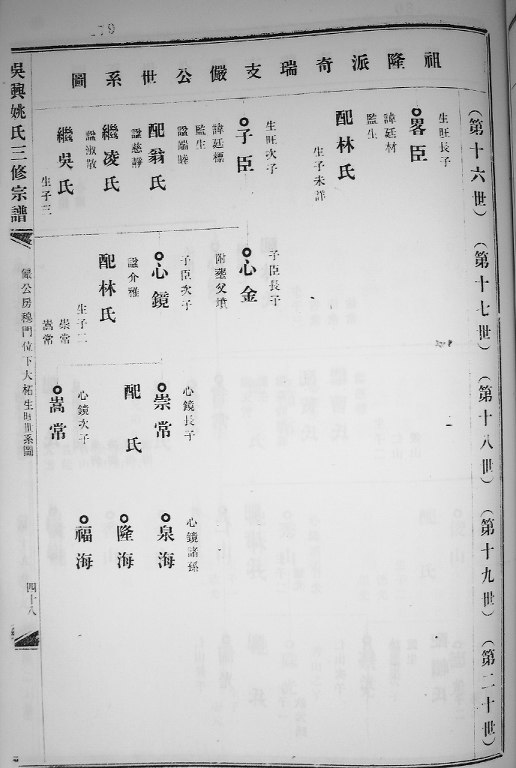 祖隆派奇瑞支儼公世系圖
(第十六世)
(第十七世)
(第十八世)
(第十九世)
(第二十世)
生旺長子
畧臣
諱廷材
監生
配林氏
生子未詳
生旺次子
子臣
諱廷標
監生
諡端睦
配翁氏
諡慈靜
繼凌氏
諡淑敬
繼吳氏
生子三
子臣長子
心金
附塟父墳
子臣次子
心鏡
諡介雅
配林氏
生子二
崇常
嵩常
心鏡長子
崇常
配 氏
心鏡次子
嵩常
心鏡諸孫
泉海
隆海
福海
吳興姚氏三修宗譜
儼公房穆門位下大柘生旺世系圖
四十八